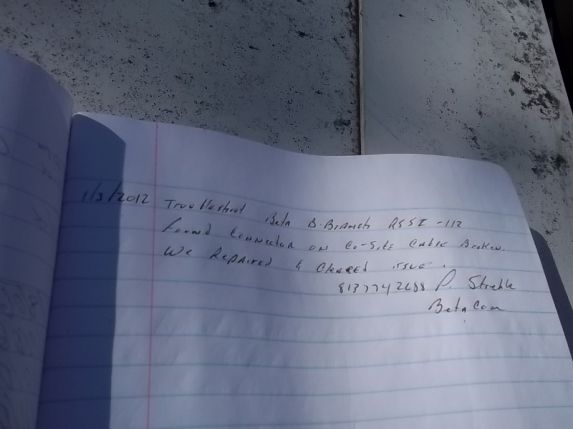 1/3/2012 Troubleshoot Beta B-Branch RSSI -112
Found Connector on Co-Site Cable Broken.
We Repaired & Cleared issue.
P. Strehle
BetaCom